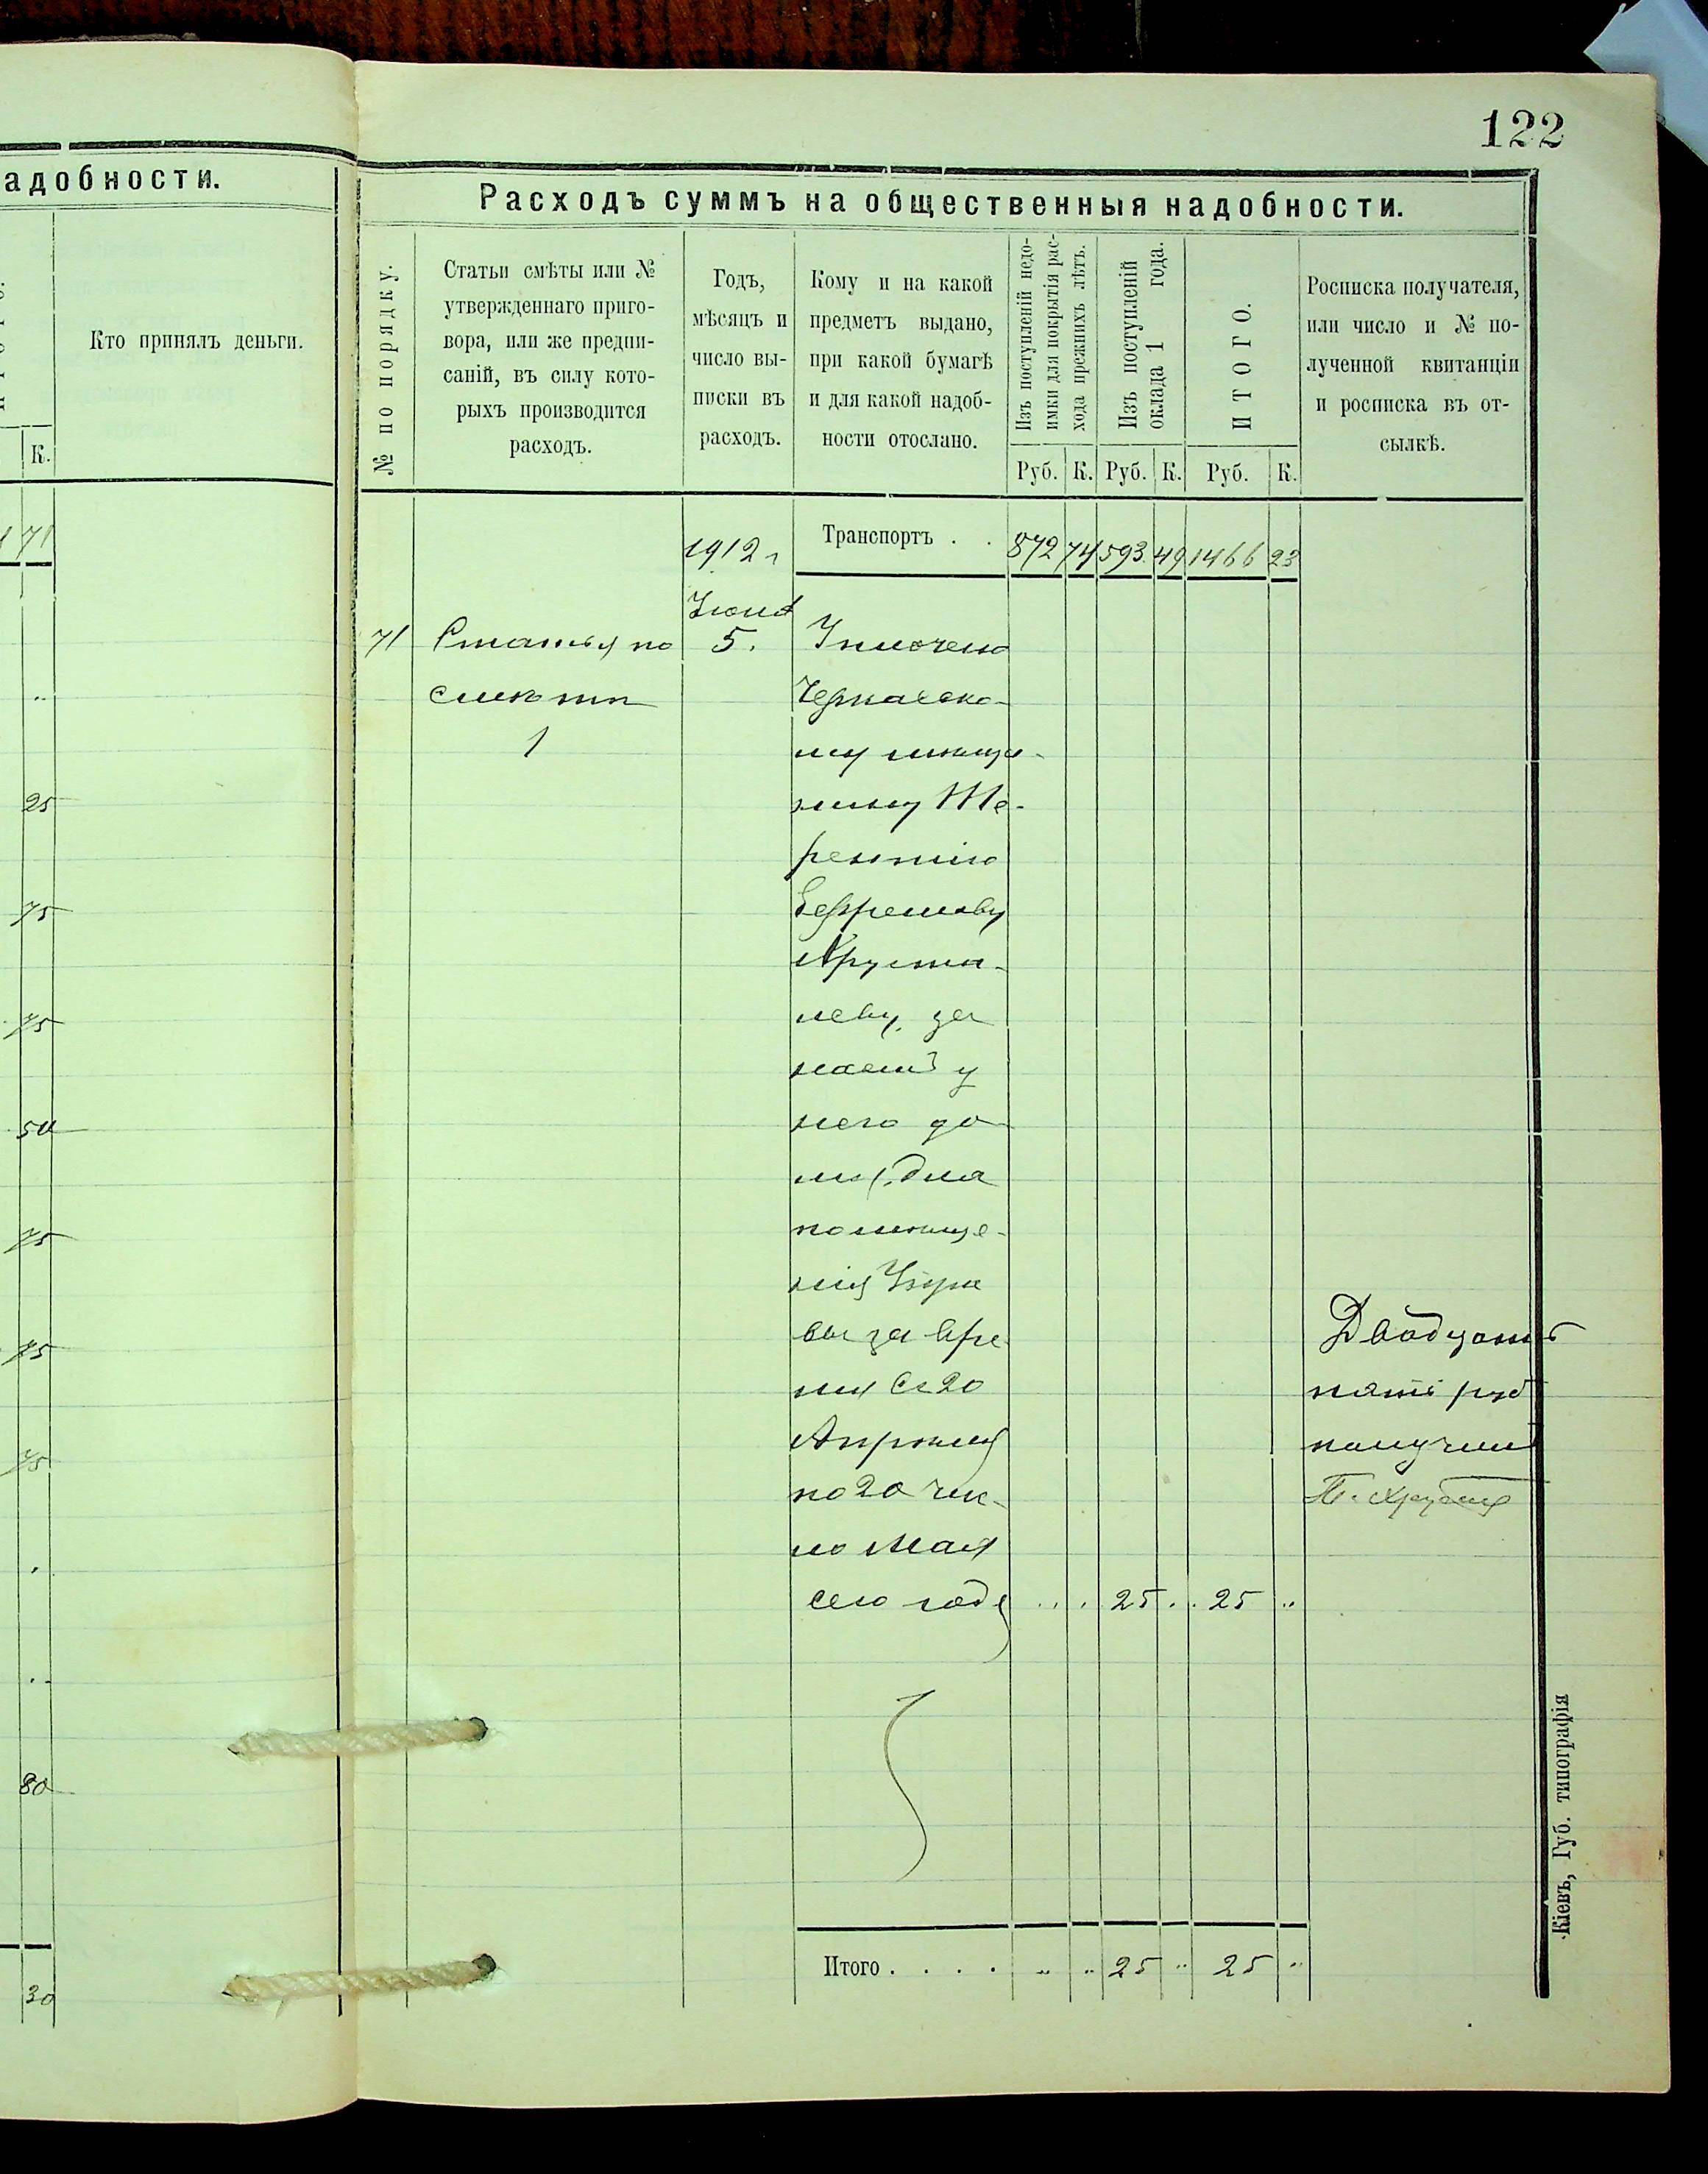 122
адобности.
К.
Кто принялъ деньги.
71
25
75
75
50
75
75
75
80
30
Расходъ суммъ на общественныя надобности.
№ по порядку.
Статьи смѣты или №
утвержденнаго приго-
вора, или же предпи-
саній, въ силу кото-
рыхъ производится
расходъ.
Годъ,
мѣсяцъ и
число вы-
писки въ
расходъ.
Кому и на какой
предметъ выдано,
при какой бумагѣ
и для какой надоб-
ности отослано.
Изъ поступленій недо-
имки для покрытія рас-
хода прежнихъ лѣтъ.
Изъ поступленій
оклада 1 года.
ИТОГО.
Росписка получателя,
или число и № по-
лученной квитанціи
и росписка въ от-
сылкѣ.
Руб. К. Руб. К. Руб. К.
1912 г
Транспортъ . . 872 74 593 49 1466 23
Іюня
71 Статья по 5. Уплочено
смѣтѣ Черкасско-
1 му мѣща-
нину Те-
рентію
Ефремову
Хруста-
леву, за
наемъ у
него до
ма, для
помѣще-
нія Упра
вы за вре
мя съ 20
Апрѣля
по 20 чис-
ло Мая
сего года . . . 25 . . 25 ..
Двадцать
пять руб
получилъ
Итого . . . . .. .. 25 .. 25 ..
Кіевъ, Губ. типографія